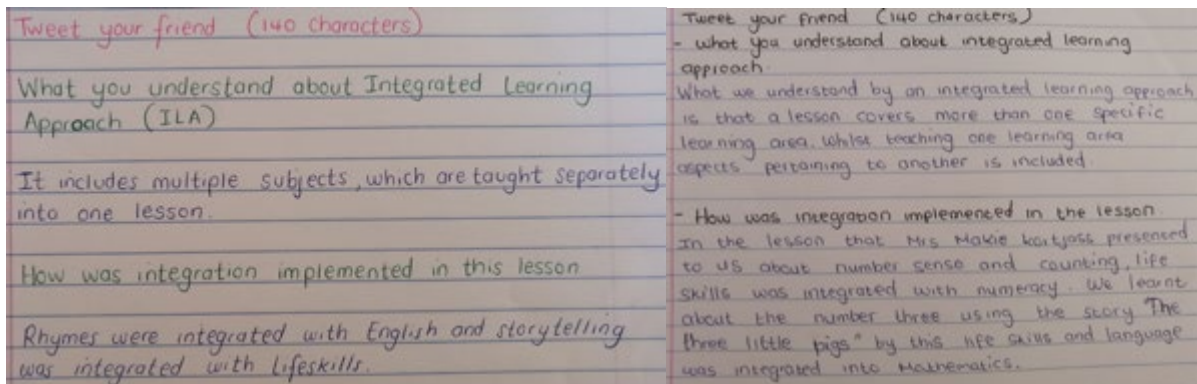 Tweet your friend (140 characters)
What you understand about Integrated Learning
Approach (ILA)
It includes multiple subjects, which are taught separately
into one lesson.
How was integration implemented in this lesson
Rhymes were integrated with English and storytelling
was integrated with Lifeskills.
Tweet your friend (140 characters)
- what you understand about integrated learning
approach.
What we understand by an integrated learning approach
is that a lesson covers more than one specific
learning area. Whilst teaching one learning area
aspects pertaining to another is included.
- How was integration implemented in the lesson.
In the lesson that Mrs Makie presented
to us about number sense and counting, life
skills was integrated with numeracy. We learnt
about the number three using the story "The
three little pigs" by this life skills and language
was integrated into Mathematics.